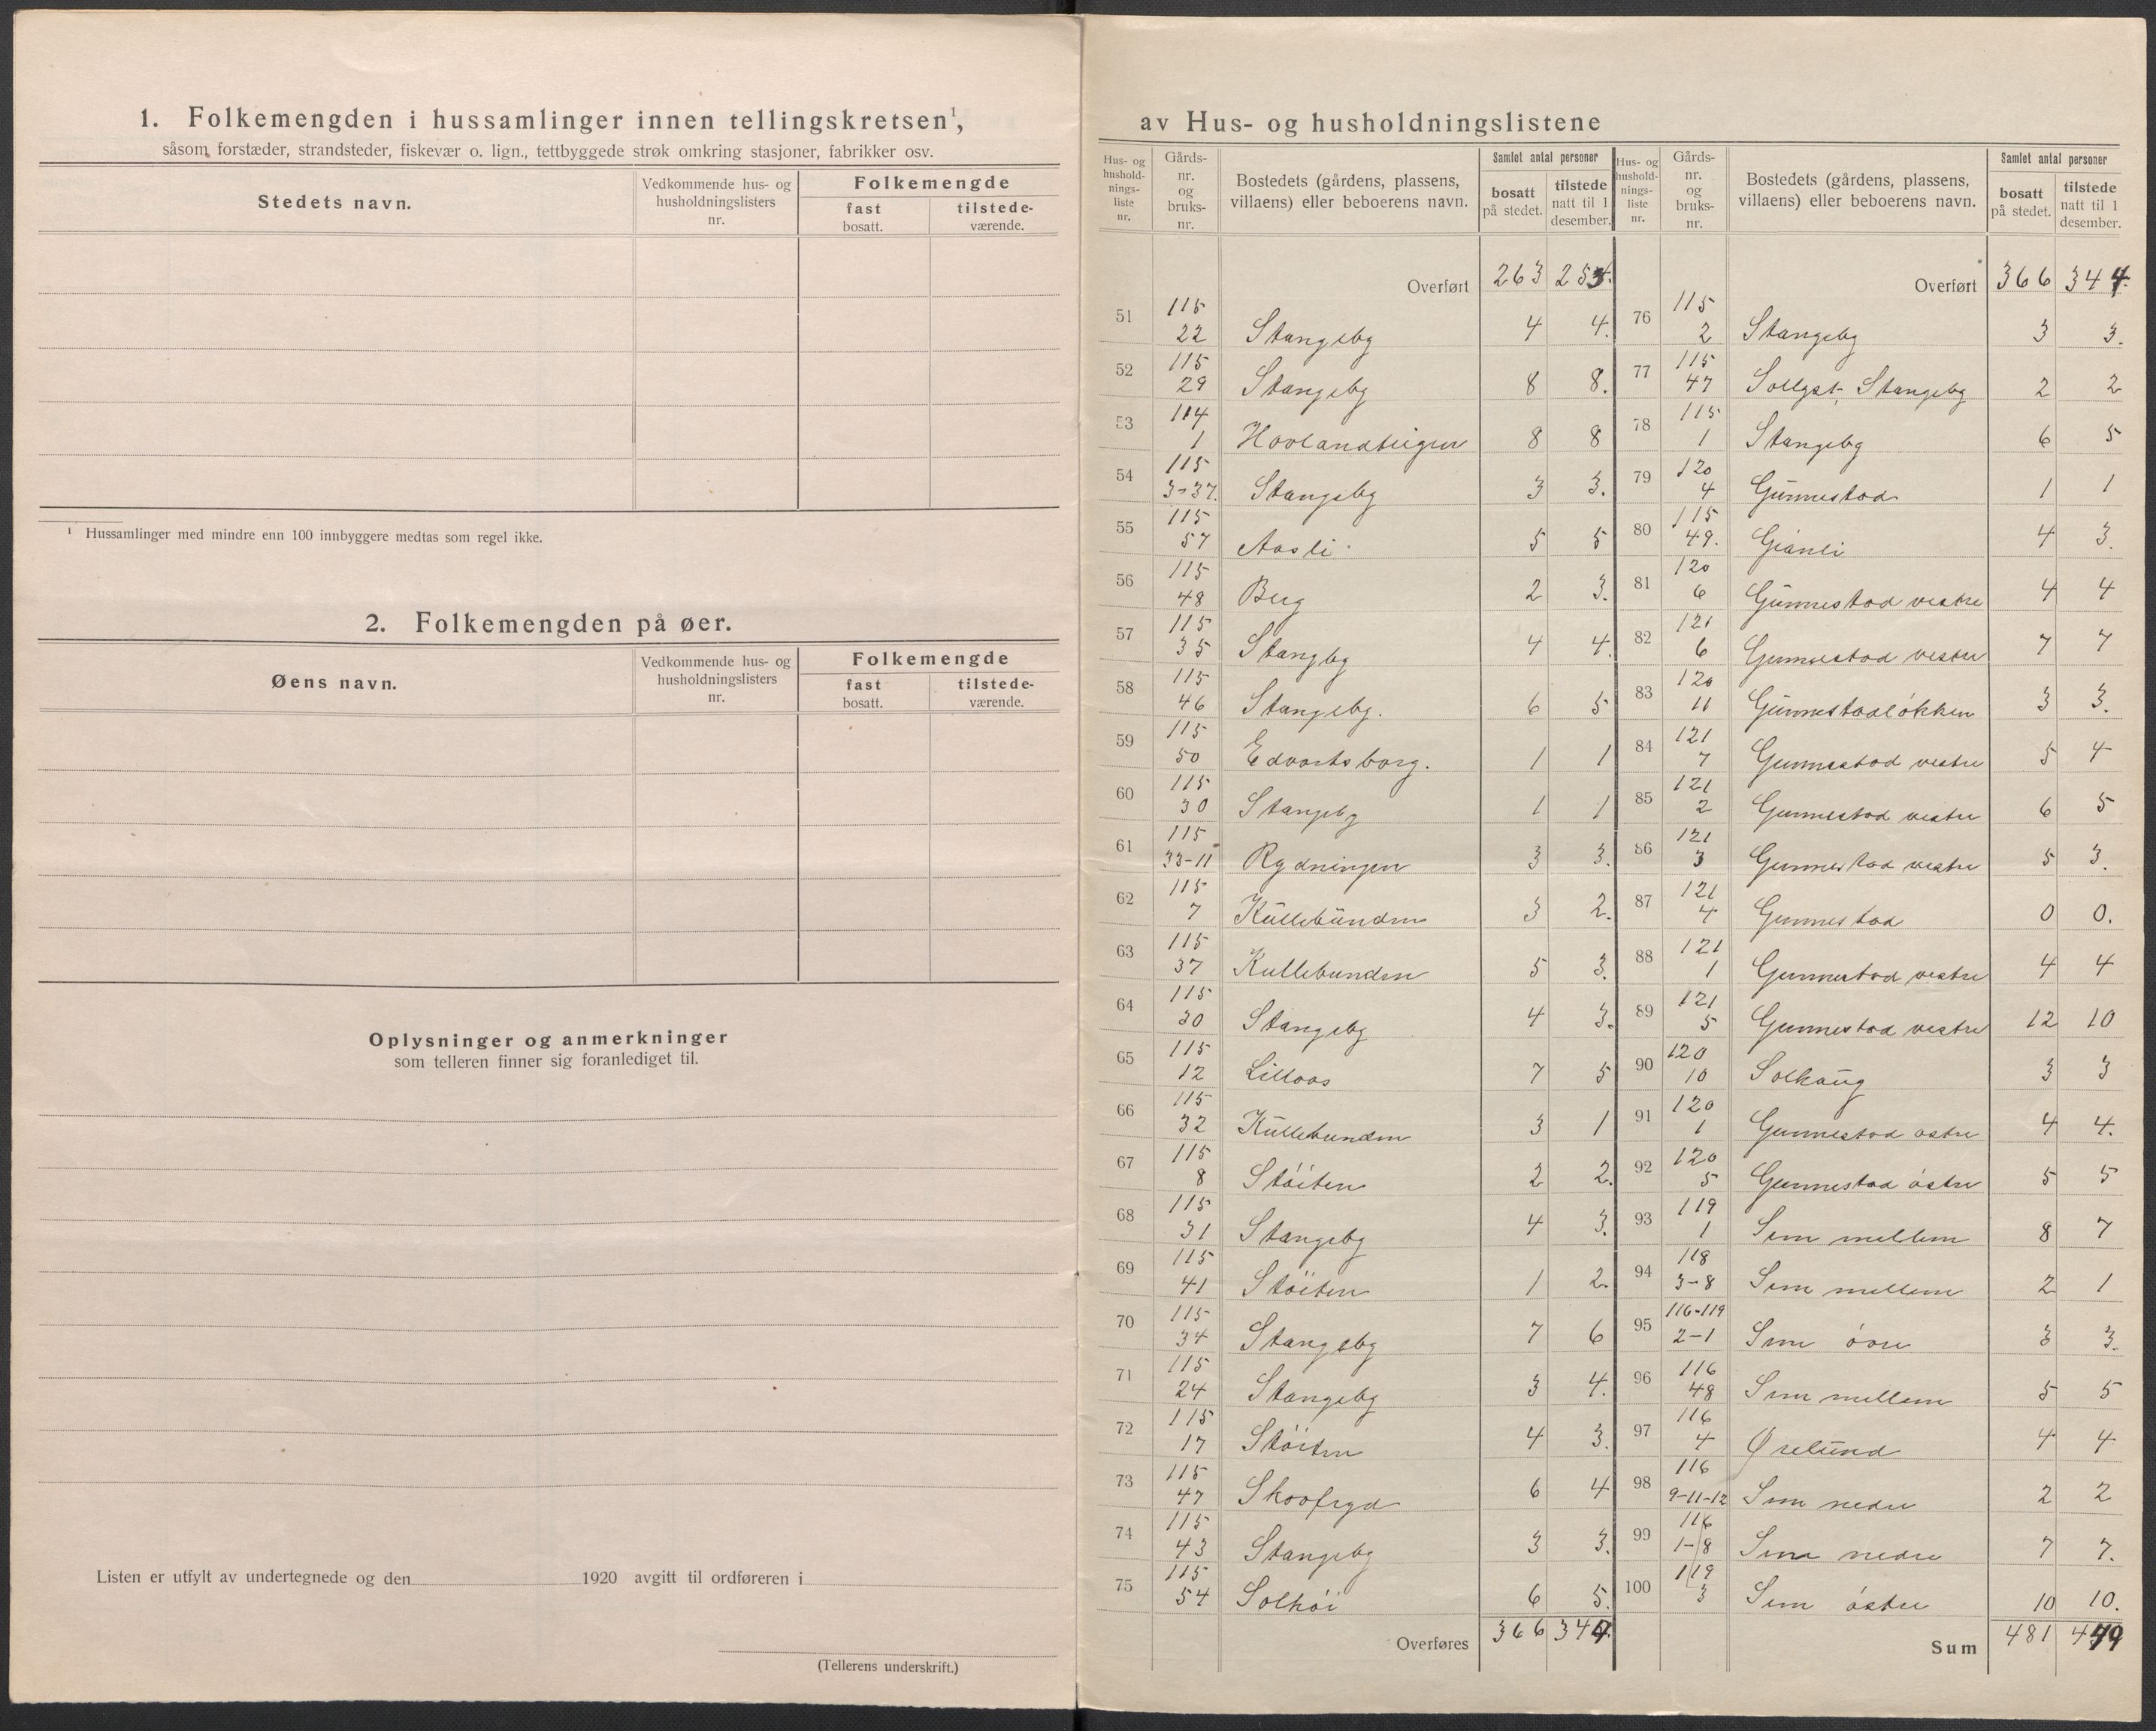 1. Folkemengden i hussamlinger innen tellingskretsen¹,
såsom forstæder, strandsteder, fiskevær o. lign., tettbyggede strøk omkring stasjoner, fabrikker osv.
Stedets navn.
Vedkommende hus- og husholdningslisters nr.
Folkemengde
fast bosatt.
tilstede-værende.
¹ Hussamlinger med mindre enn 100 innbyggere medtas som regel ikke.
2. Folkemengden på øer.
Øens navn.
Vedkommende hus- og husholdningslisters nr.
Folkemengde
fast bosatt.
tilstede-værende.
Oplysninger og anmerkninger
som telleren finner sig foranlediget til.
Listen er utfylt av undertegnede og den 1920 avgitt til ordføreren i
(Tellerens underskrift.)
av Hus- og husholdningslistene
Hus- og hushold-nings-liste nr.
Gårds-nr. og bruks-nr.
Bostedets (gårdens, plassens, villaens) eller beboerens navn.
Samlet antal personer
bosatt på stedet.
tilstede natt til 1 desember.
Overført 263 254.
51 115 22 Stangeby 4 4.
52 115 29 Stangeby 8 8.
53 114 1 Hovlandteigen 8 8
54 115 3-37. Stangeby 3 3.
55 115 57 Aasli 5 5
56 115 48 Berg 2 3.
57 115 35 Stangby 4 4.
58 115 46 Stangeby. 6 5
59 115 50 Edvartsborg. 1 1
60 115 30 Stangeby 1 1
61 115 33-11 Rydningen 3 3.
62 115 7 Kullebunden 3 2.
63 115 37 Kullebunden 5 3.
64 115 30 Stangeby 4 3.
65 115 12 Lilloas 7 5
66 115 32 Kullebunden 3 1
67 115 8 Stöiten 2 2.
68 115 31 Stangeby 4 3.
69 115 41 Stöiten 1 2.
70 115 34 Stangeby 7 6
71 115 24 Stangeby 3 4.
72 115 17 Stöiten 4 3.
73 115 47 Skovfryd 6 4
74 115 43 Stangeby 3 3.
75 115 54 Solhöi 6 5.
Overføres 366 344.
Hus- og hushold-nings-liste nr.
Gårds-nr. og bruks-nr.
Bostedets (gårdens, plassens, villaens) eller beboerens navn.
Samlet antal personer
bosatt på stedet.
tilstede natt til 1 desember.
Overført 366 344.
76 115 2 Stangeby 3 3.
77 115 47 Stangeby 2 2
78 115 1 Stangeby 6 5
79 120 4 Gunnestad 1 1
80 115 49. Granli 4 3.
81 120 6 Gunnestad vestre 4 4
82 121 6 Gunnestad vestre 7 7
83 120 11 Gunnestadlökken 3 3.
84 121 7 Gunnestad vestre 5 4
85 121 2 Gunnestad vestre 6 5
86 121 3 Gunnestad vestre 5 3.
87 121 4 Gunnestad 0 0.
88 121 1 Gunnestad vestre 4 4
89 121 5 Gunnestad vestre 12 10
90 120 10 Solhaug 3 3
91 120 1 Gunnestad östre 4 4.
92 120 5 Gunnestad östre 5 5
93 119 1 Sem mellem 8 7
94 118 3-8 Sem mellem 2 1
95 116-119 2-1 Sem övre 3 3.
96 116 48 Sem mellem 5 5
97 116 4 Ørelund 4 4
98 116 9-11-12 Sem nedre 2 2
99 116 1-8 Sem nedre 7 7.
100 119 3 Sem östre 10 10.
Sum 481 449